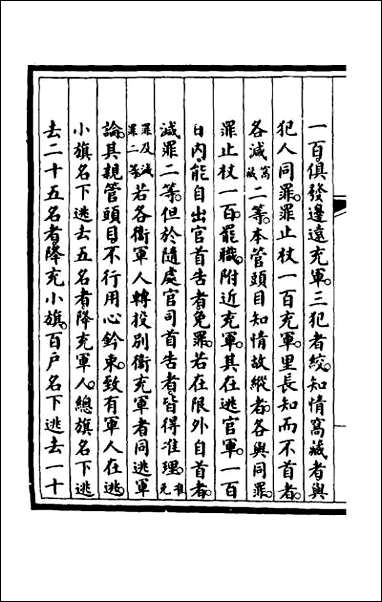 一百俱發邊遠充軍三犯者絞知情窩藏者與
犯人同罪罪止杖一百充軍里長知而不首者
各減窩藏二等本管頭目知情故縱者各與同罪
罪止杖一百罷職附近充軍其在逃官軍一百
日內能自出官首告者免罪若在限外自首者
減罪二等但於隨處官司首告者皆得准理准免
罪及減罪二等若各衛軍人轉投別衛充軍者同逃軍
論其親管頭目不行用心鈐束致有軍人在逃
小旗名下逃去五名者降充軍人總旗名下逃
去二十五名者降充小旗百户名下逃去一十